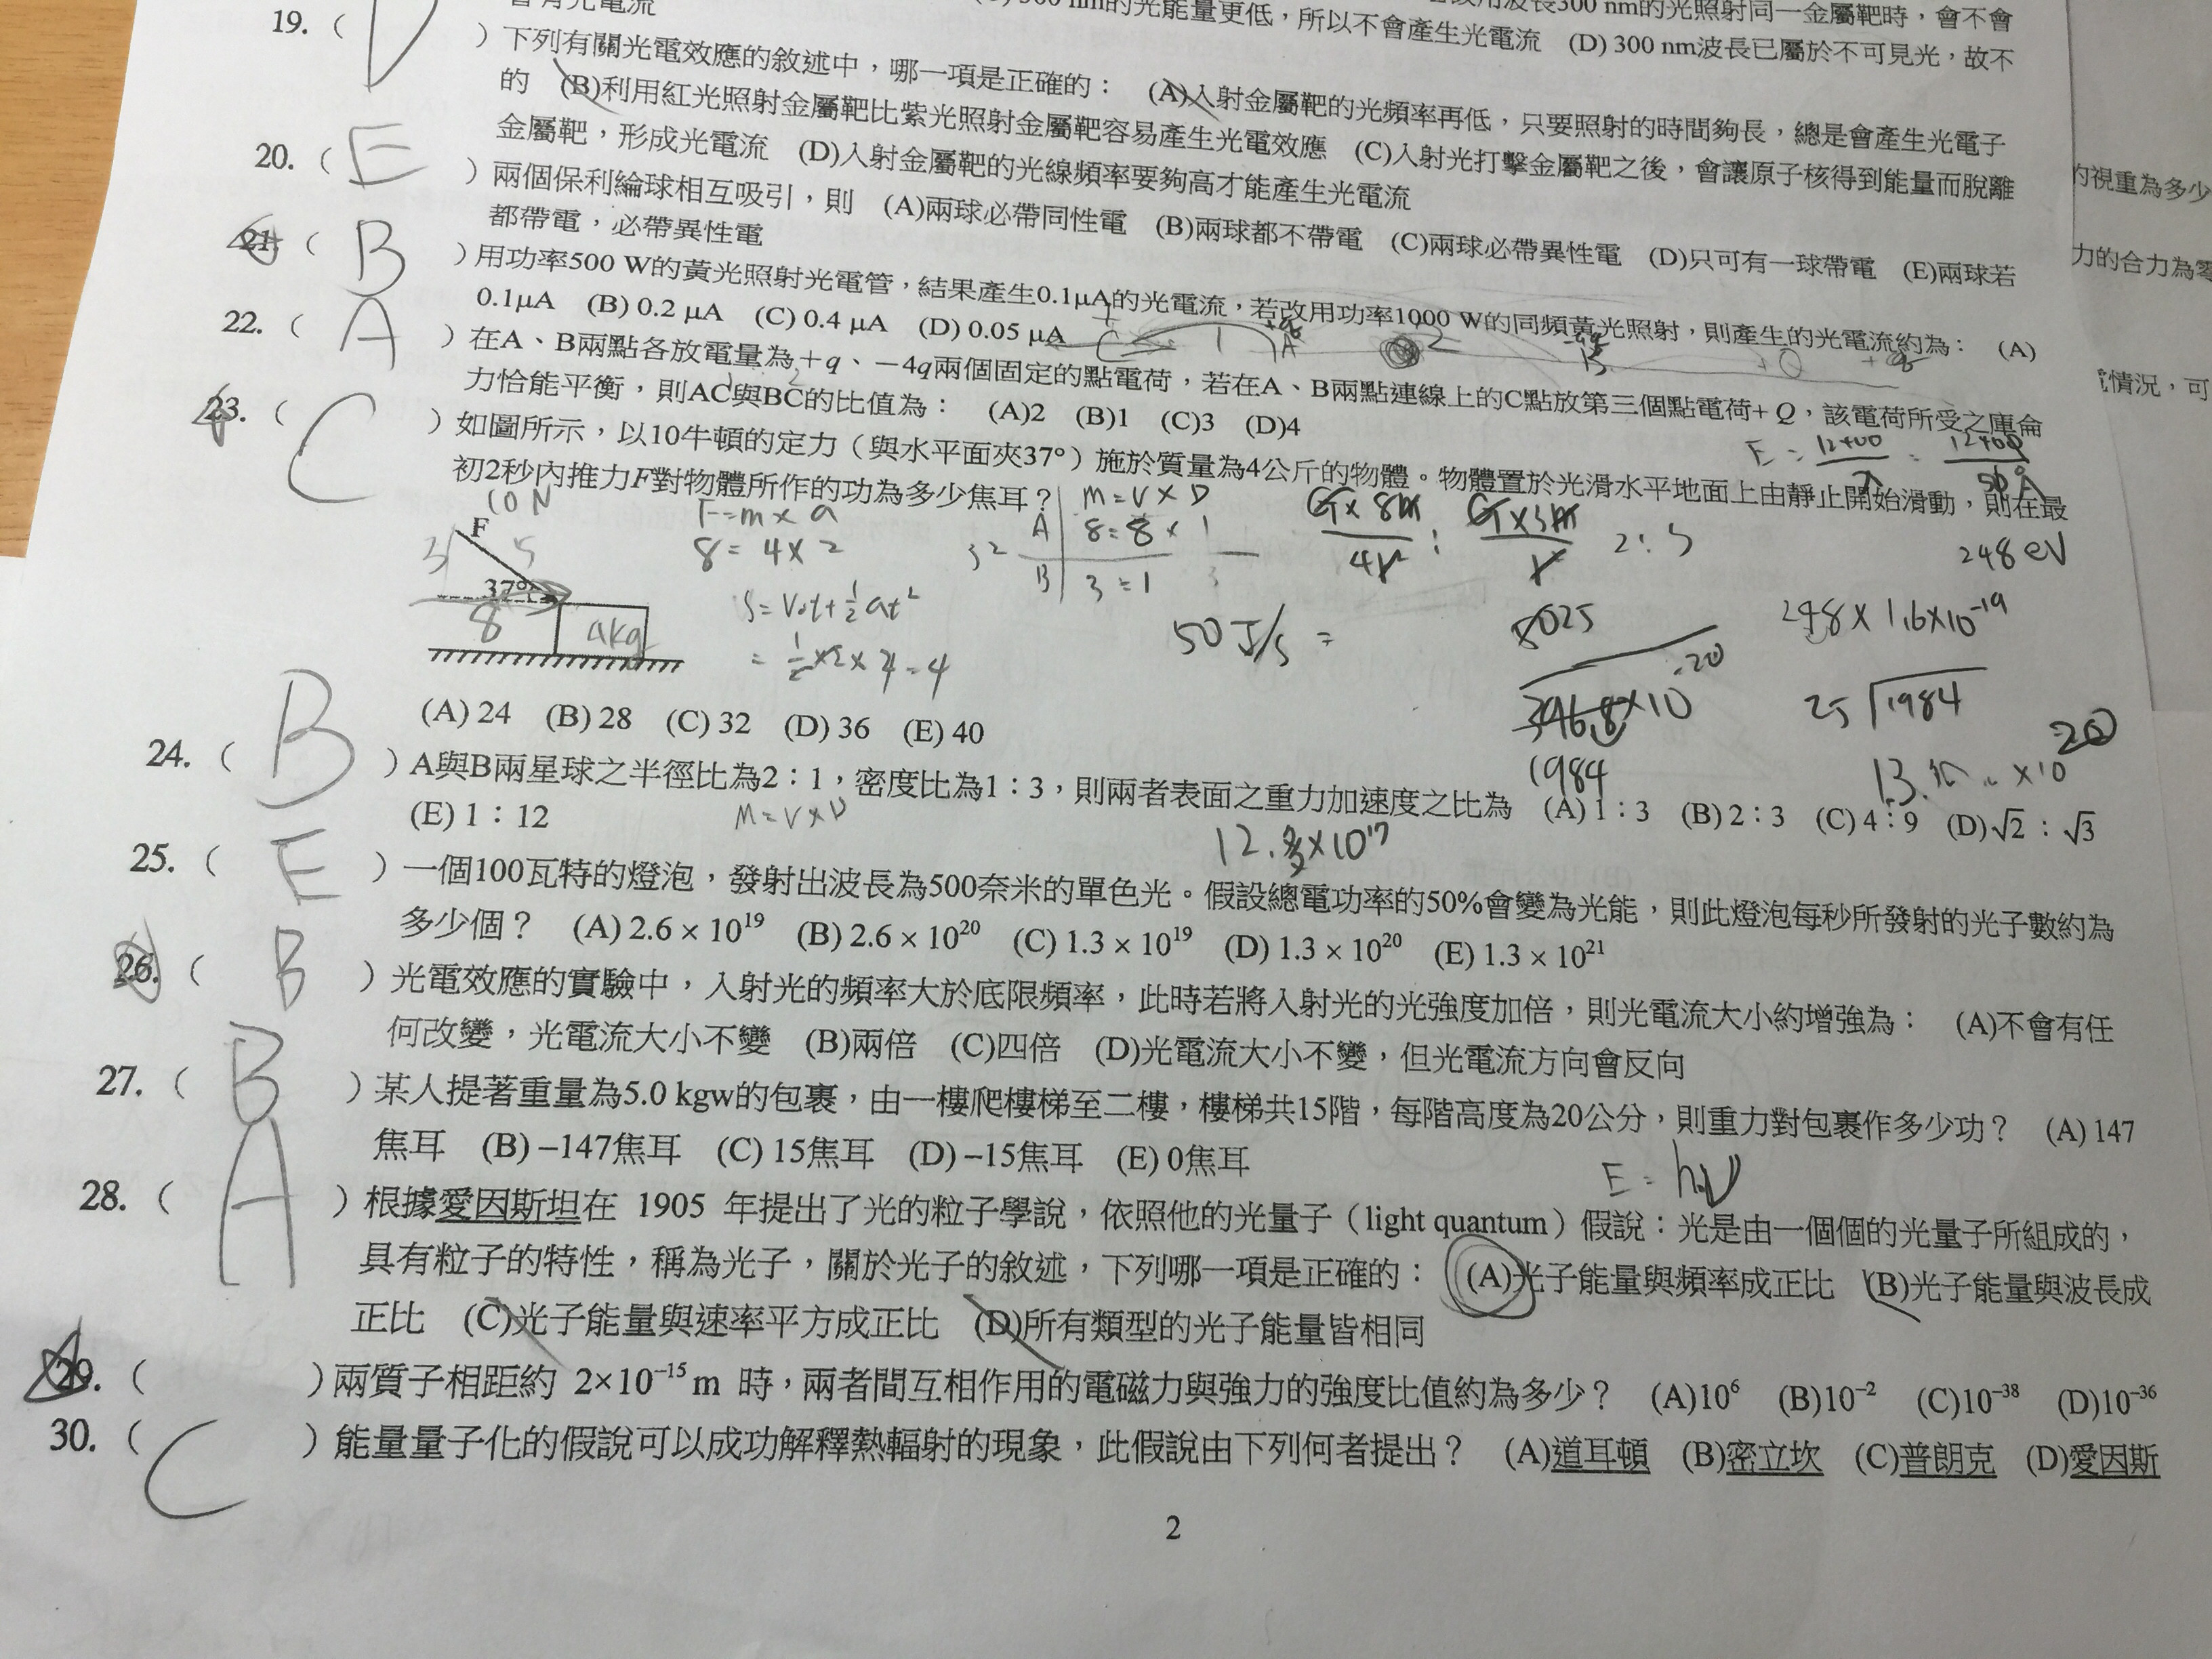 的光能量更低，所以不會產生光電流 (D) 300 nm波長已屬於不可見光，故不
會有光電流
19. ( D ) 下列有關光電效應的敘述中，哪一項是正確的： (A)入射金屬靶的光頻率再低，只要照射的時間夠長，總是會產生光電子
的 (B)利用紅光照射金屬靶比紫光照射金屬靶容易產生光電效應 (C)入射光打擊金屬靶之後，會讓原子核得到能量而脫離
金屬靶，形成光電流 (D)入射金屬靶的光線頻率要夠高才能產生光電流
20. ( E ) 兩個保利綸球相互吸引，則 (A)兩球必帶同性電 (B)兩球都不帶電 (C)兩球必帶異性電 (D)只可有一球帶電 (E)兩球若
都帶電，必帶異性電
21. ( B ) 用功率500 W的黃光照射光電管，結果產生0.1μA的光電流，若改用功率1000 W的同頻黃光照射，則產生的光電流約為： (A)
0.1μA (B) 0.2 μA (C) 0.4 μA (D) 0.05 μA
22. ( A ) 在A、B兩點各放電量為+q、−4q兩個固定的點電荷，若在A、B兩點連線上的C點放第三個點電荷+Q，該電荷所受之庫侖
力恰能平衡，則AC與BC的比值為： (A)2 (B)1 (C)3 (D)4
23. ( C ) 如圖所示，以10牛頓的定力（與水平面夾37°）施於質量為4公斤的物體。物體置於光滑水平地面上由靜止開始滑動，則在最
初2秒內推力F對物體所作的功為多少焦耳？
10 N
F
3
5
37°
8
4kg
F=m×a
8=4×2
S=V₀t+½at²
=½×2×4=4
M=V×D
A 8=8×1
B 3=1
2:3
50 J/s =
248 eV
248×1.6×10⁻¹⁹
1984
25 1984
(A) 24 (B) 28 (C) 32 (D) 36 (E) 40
24. ( B ) A與B兩星球之半徑比為2：1，密度比為1：3，則兩者表面之重力加速度之比為 (A) 1：3 (B) 2：3 (C) 4：9 (D)√2：√3
(E) 1：12
M=V×D
25. ( E ) 一個100瓦特的燈泡，發射出波長為500奈米的單色光。假設總電功率的50%會變為光能，則此燈泡每秒所發射的光子數約為
多少個？ (A) 2.6 × 10¹⁹ (B) 2.6 × 10²⁰ (C) 1.3 × 10¹⁹ (D) 1.3 × 10²⁰ (E) 1.3 × 10²¹
26. ( B ) 光電效應的實驗中，入射光的頻率大於底限頻率，此時若將入射光的光強度加倍，則光電流大小約增強為： (A)不會有任
何改變，光電流大小不變 (B)兩倍 (C)四倍 (D)光電流大小不變，但光電流方向會反向
27. ( B ) 某人提著重量為5.0 kgw的包裹，由一樓爬樓梯至二樓，樓梯共15階，每階高度為20公分，則重力對包裹作多少功？ (A) 147
焦耳 (B) –147焦耳 (C) 15焦耳 (D) –15焦耳 (E) 0焦耳
E=hν
28. ( A ) 根據愛因斯坦在 1905 年提出了光的粒子學說，依照他的光量子（light quantum）假說：光是由一個個的光量子所組成的，
具有粒子的特性，稱為光子，關於光子的敘述，下列哪一項是正確的： (A)光子能量與頻率成正比 (B)光子能量與波長成
正比 (C)光子能量與速率平方成正比 (D)所有類型的光子能量皆相同
29. ( ) 兩質子相距約 2×10⁻¹⁵ m 時，兩者間互相作用的電磁力與強力的強度比值約為多少？ (A)10⁶ (B)10⁻² (C)10⁻³⁸ (D)10⁻³⁶
30. ( C ) 能量量子化的假說可以成功解釋熱輻射的現象，此假說由下列何者提出？ (A)道耳頓 (B)密立坎 (C)普朗克 (D)愛因斯
2
的視重為多少
力的合力為零
情況，可